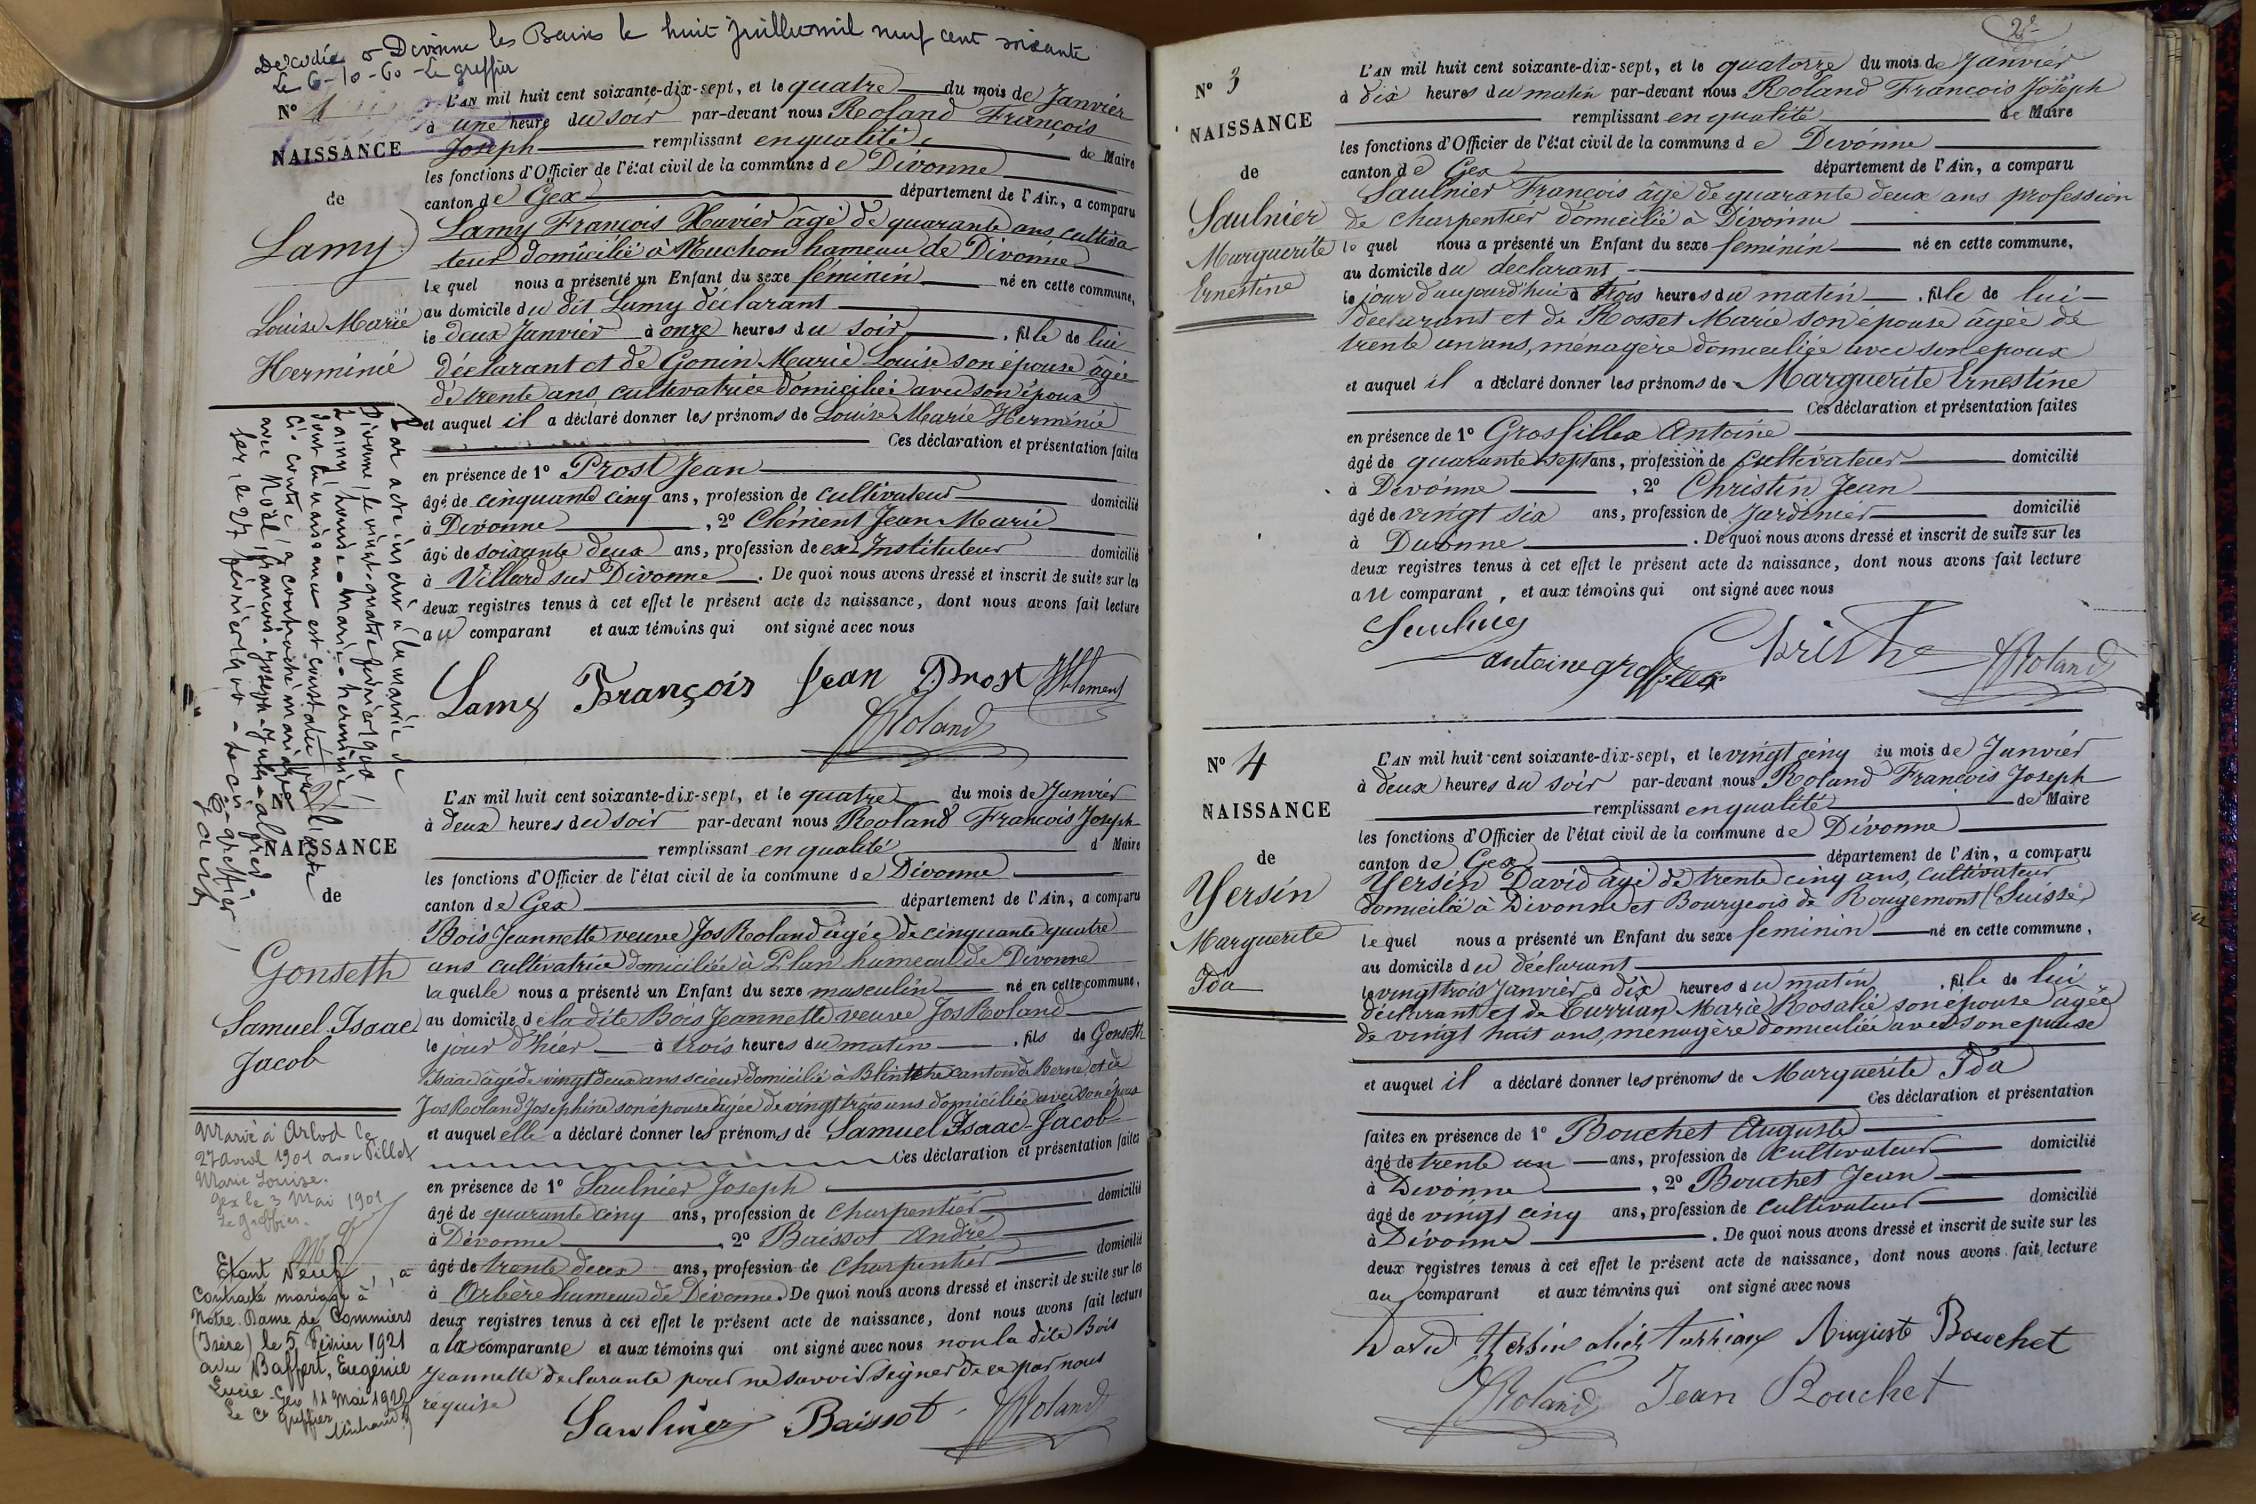 Décédée à Divonne les Bains le huit juillet mil neuf cent soixante
Le 6-10-60 - Le greffier
N° 1
NAISSANCE
de
Lamy
Louise Marie
Herminie
L'AN mil huit cent soixante-dix-sept, et le quatre du mois de Janvier
à une heure du soir par-devant nous Roland François
Joseph remplissant en qualité de Maire
les fonctions d'Officier de l'état civil de la commune de Divonne
canton de Gex département de l'Ain, a comparu
Lamy François Xavier âgé de quarante ans cultiva
teur domicilié à Muchon hameau de Divonne
lequel nous a présenté un Enfant du sexe féminin né en cette commune,
au domicile du dit Lamy déclarant
le deux Janvier à onze heures du soir, fille de lui
déclarant et de Gonin Marie Louise son épouse âgée
de trente ans cultivatrice domiciliée avec son époux
et auquel il a déclaré donner les prénoms de Louise Marie Herminie
Ces déclaration et présentation faites
en présence de 1° Prost Jean
âgé de cinquante cinq ans, profession de cultivateur domicilié
à Divonne, 2° Clément Jean Marie
âgé de soixante deux ans, profession de ex Instituteur domicilié
à Villard sur Divonne. De quoi nous avons dressé et inscrit de suite sur les
deux registres tenus à cet effet le présent acte de naissance, dont nous avons fait lecture
au comparant et aux témoins qui ont signé avec nous
Lamy François Jean Prost Clement
Roland
Par acte inscrit à la mairie de
Divonne, le vingt-quatre février 1900,
Lamy, louise-marie-herminie,
dont la naissance est constatée par l'acte
ci-contre, a contracté mariage
avec Noël, françois-joseph-jules-alfred.
Gex, le 27 février 1900 - Le cis-greffier,
N°
NAISSANCE
de
Gonseth
Samuel Isaac
Jacob
L'AN mil huit cent soixante-dix-sept, et le quatre du mois de Janvier
à deux heures du soir par-devant nous Roland François Joseph
remplissant en qualité d Maire
les fonctions d'Officier de l'état civil de la commune de Divonne
canton de Gex département de l'Ain, a comparu
Bois Jeannette veuve Jos Roland âgée de cinquante quatre
ans cultivatrice domiciliée à Plan hameau de Divonne
laquelle nous a présenté un Enfant du sexe masculin né en cette commune,
au domicile de la dite Bois Jeannette veuve Jos Roland
le jour d'hier à trois heures du matin, fils de Gonseth
Isaac âgé de vingt deux ans scieur domicilié à canton de Berne, et de
Jos Roland Josephine son épouse âgée de vingt trois ans domiciliée avec son époux
et auquel elle a déclaré donner les prénoms de Samuel Isaac-Jacob
Ces déclaration et présentation faites
en présence de 1° Saulnier Joseph
âgé de quarante cinq ans, profession de Charpentier domicilié
à Divonne, 2° Baissot André
âgé de trente deux ans, profession de Charpentier domicilié
à Arbère hameau de Divonne. De quoi nous avons dressé et inscrit de suite sur les
deux registres tenus à cet effet le présent acte de naissance, dont nous avons fait lecture
a la comparante et aux témoins qui ont signé avec nous non la dite Bois
Jeannette déclarante pour ne savoir signer de ce par nous
requise
Saulnier Baissot Roland
Marié à Arlod le
27 avril 1901 avec Pillet
Marie Louise.
Gex le 3 Mai 1901
Le Greffier.
Etant Veuf, a
contracté mariage à
Notre Dame de Commiers
(Isère) le 5 Février 1921
avec Baffert, Eugénie
Lucie. Gex 11 Mai 1922
Le Cs Greffier
2e
N° 3
NAISSANCE
de
Saulnier
Marguerite
Ernestine
L'AN mil huit cent soixante-dix-sept, et le quatorze du mois de Janvier
à dix heures du matin par-devant nous Roland François Joseph
remplissant en qualité de Maire
les fonctions d'Officier de l'état civil de la commune de Divonne
canton de Gex département de l'Ain, a comparu
Saulnier François âgé de quarante deux ans profession
de charpentier domicilié à Divonne
lequel nous a présenté un Enfant du sexe feminin né en cette commune,
au domicile du declarant
le jour d'aujourd'hui à trois heures du matin, fille de lui
declarant et de Rosset Marie son épouse âgée de
trente un ans, ménagère domiciliée avec son epoux
et auquel il a déclaré donner les prénoms de Marguerite Ernestine
Ces déclaration et présentation faites
en présence de 1° Grosfillex Antoine
âgé de quarante sept ans, profession de Cultivateur domicilié
à Divonne, 2° Christin Jean
âgé de vingt six ans, profession de Jardinier domicilié
à Divonne. De quoi nous avons dressé et inscrit de suite sur les
deux registres tenus à cet effet le présent acte de naissance, dont nous avons fait lecture
au comparant, et aux témoins qui ont signé avec nous
Saulnier
antoine grosfillex Christin Roland
N° 4
NAISSANCE
de
Yersin
Marguerite
Ida
L'AN mil huit cent soixante-dix-sept, et le vingt cinq du mois de Janvier
à deux heures du soir par-devant nous Roland François Joseph
remplissant en qualité de Maire
les fonctions d'Officier de l'état civil de la commune de Divonne
canton de Gex département de l'Ain, a comparu
Yersin David âgé de trente cinq ans, cultivateur
domicilié à Divonne et Bourgeois de Rougemont (Suisse)
lequel nous a présenté un Enfant du sexe feminin né en cette commune,
au domicile du déclarant
le vingt trois Janvier à dix heures du matin, fille de lui
déclarant et de Turrian Marie Rosalie son épouse âgée
de vingt huit ans, menagère domiciliée avec son epouse
et auquel il a déclaré donner les prénoms de Marguerite Ida
Ces déclaration et présentation
faites en présence de 1° Bouchet Auguste
âgé de trente un ans, profession de Cultivateur domicilié
à Divonne, 2° Bouchet Jean
âgé de vingt cinq ans, profession de Cultivateur domicilié
à Divonne. De quoi nous avons dressé et inscrit de suite sur les
deux registres tenus à cet effet le présent acte de naissance, dont nous avons fait lecture
au comparant et aux témoins qui ont signé avec nous
David Yersin Turrian Auguste Bouchet
Roland Jean Bouchet